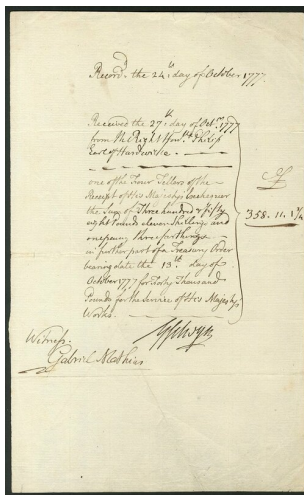 Record.d the 24.th day of October 1777.
Received the 27.th day of Oct.r 1777
from the Right Hon.ble Philip
Earl of Hardwicke
one of the Four Tellers of the
Receipt of His Majestys Exchequer
the Sum of Three hundred & fifty
eight Pounds eleven shillings and
one penny three farthings
in further part of a Treasury Order
bearing date the 13.th day of
October 1777 for Forty Thousand
Pounds for the Service of His Majestys
Works
£
358. 11. 1¾
Witness
Gabriel Mathias